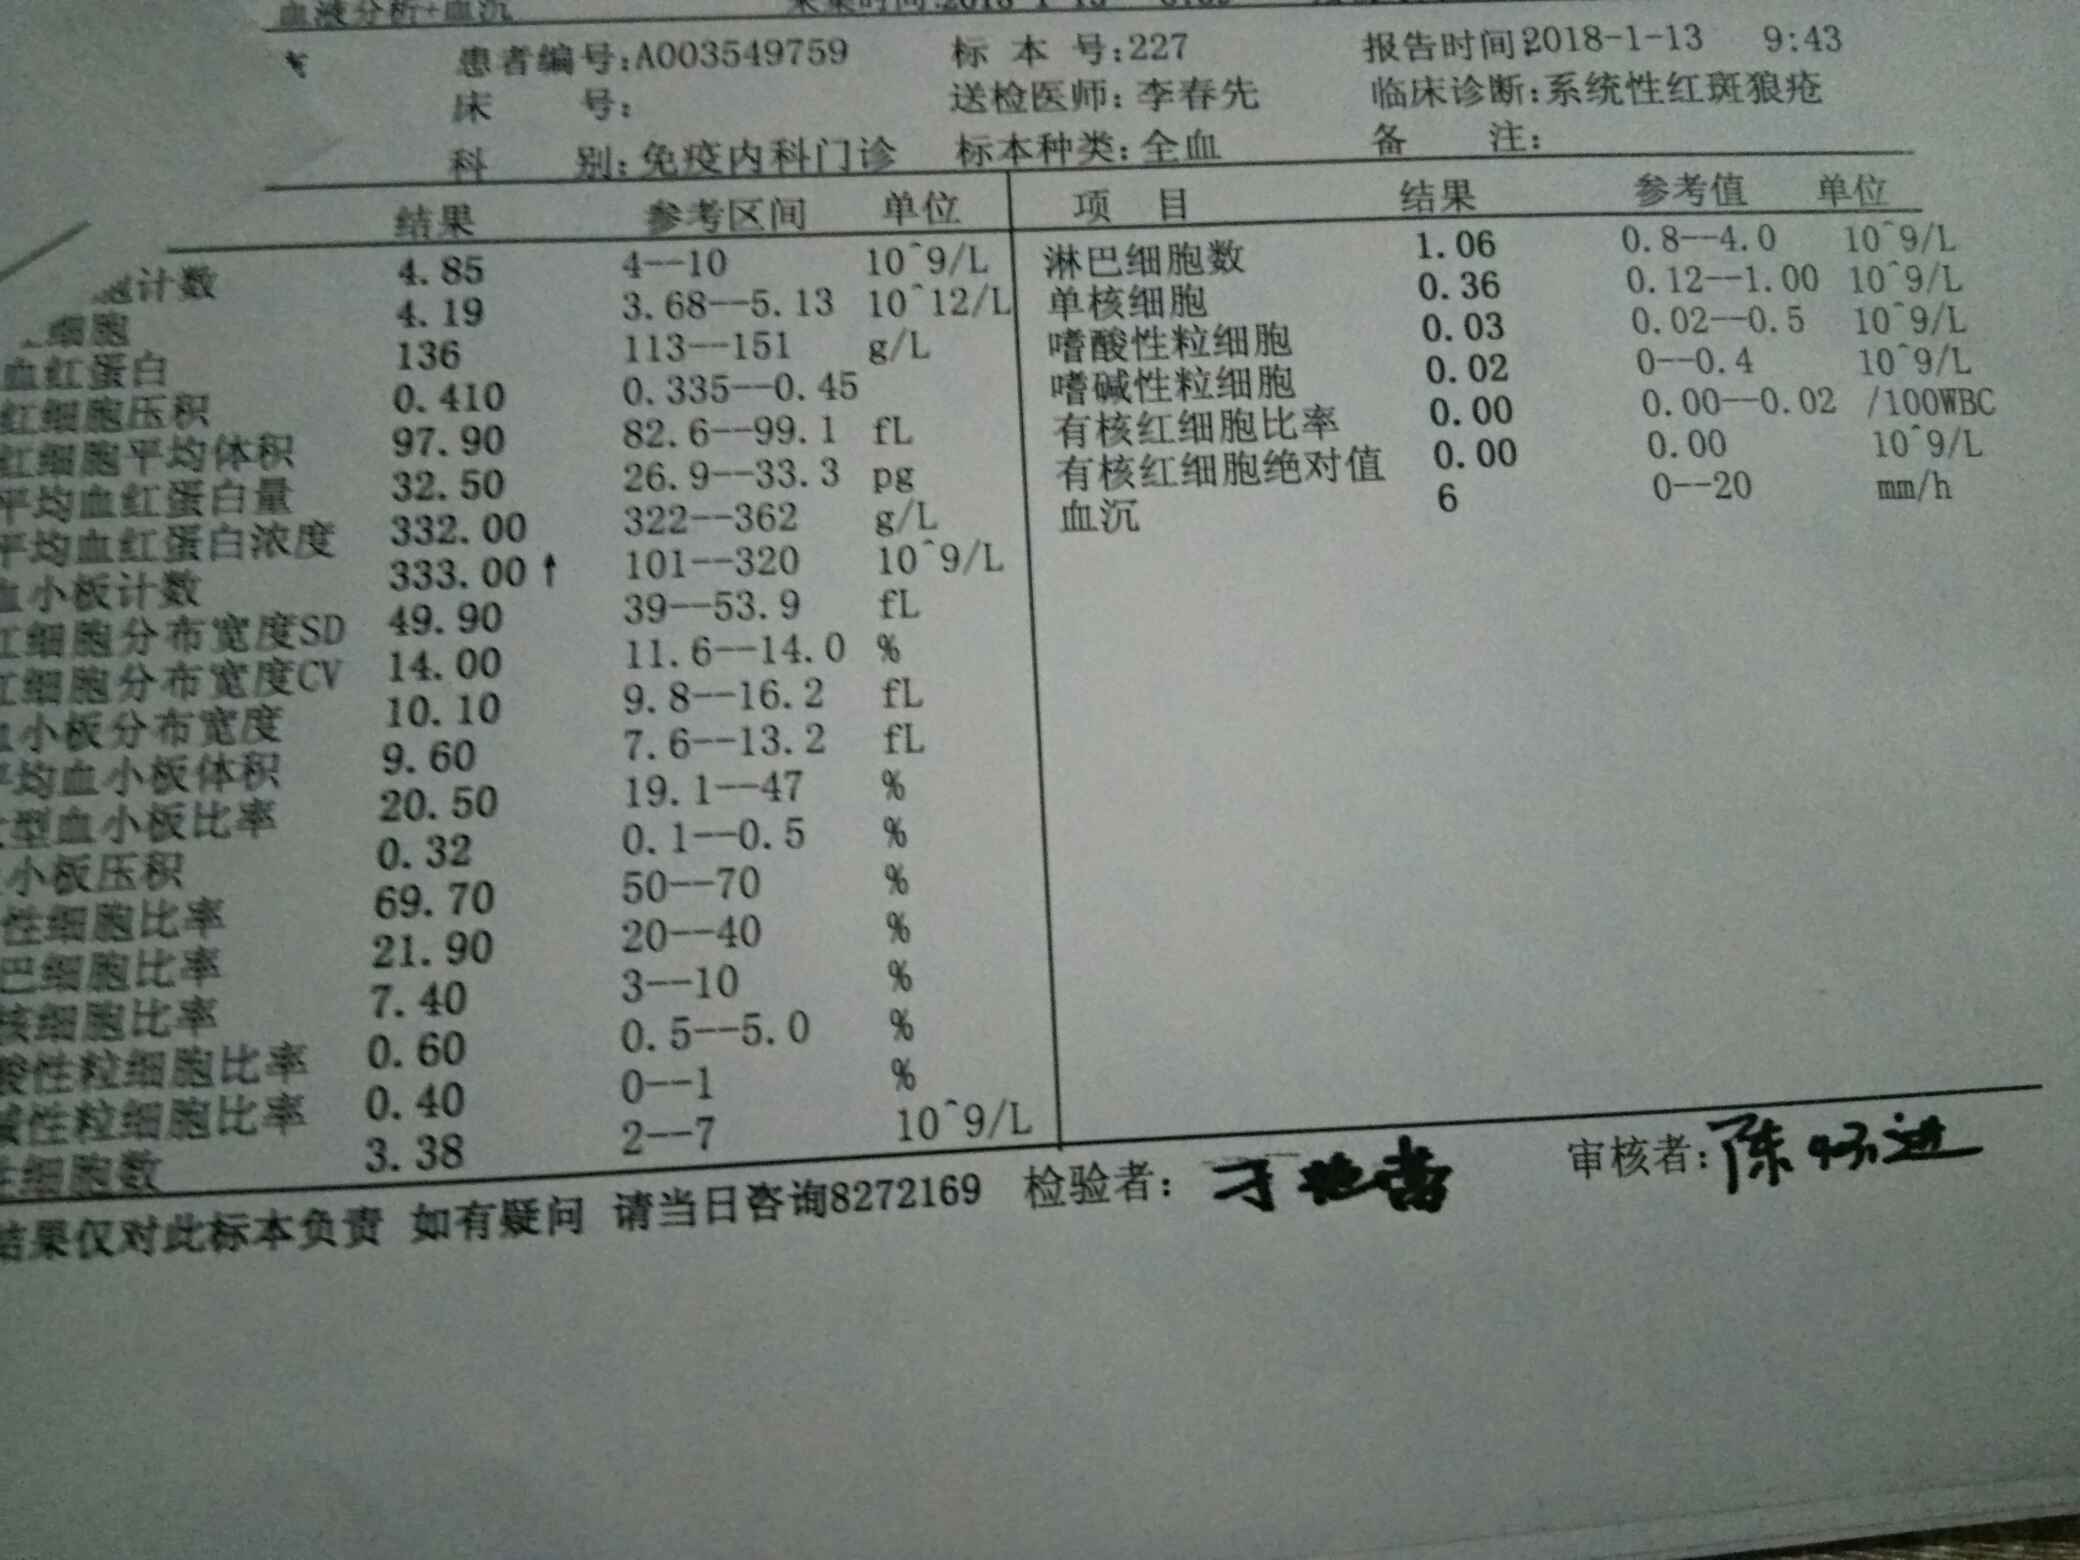 血液分析+血沉
患者编号:A003549759 标 本 号:227 报告时间:2018-1-13 9:43
床 号: 送检医师: 李春先 临床诊断:系统性红斑狼疮
科 别: 免疫内科门诊 标本种类: 全血 备 注:
结果 参考区间 单位 项 目 结果 参考值 单位
胞计数 4.85 4--10 10^9/L 淋巴细胞数 1.06 0.8--4.0 10^9/L
细胞 4.19 3.68--5.13 10^12/L 单核细胞 0.36 0.12--1.00 10^9/L
血红蛋白 136 113--151 g/L 嗜酸性粒细胞 0.03 0.02--0.5 10^9/L
红细胞压积 0.410 0.335--0.45 嗜碱性粒细胞 0.02 0--0.4 10^9/L
红细胞平均体积 97.90 82.6--99.1 fL 有核红细胞比率 0.00 0.00--0.02 /100WBC
平均血红蛋白量 32.50 26.9--33.3 pg 有核红细胞绝对值 0.00 0.00 10^9/L
平均血红蛋白浓度 332.00 322--362 g/L 血沉 6 0--20 mm/h
血小板计数 333.00↑ 101--320 10^9/L
红细胞分布宽度SD 49.90 39--53.9 fL
红细胞分布宽度CV 14.00 11.6--14.0 %
血小板分布宽度 10.10 9.8--16.2 fL
平均血小板体积 9.60 7.6--13.2 fL
型血小板比率 20.50 19.1--47 %
小板压积 0.32 0.1--0.5 %
性细胞比率 69.70 50--70 %
巴细胞比率 21.90 20--40 %
核细胞比率 7.40 3--10 %
酸性粒细胞比率 0.60 0.5--5.0 %
碱性粒细胞比率 0.40 0--1 %
性细胞数 3.38 2--7 10^9/L
结果仅对此标本负责 如有疑问 请当日咨询8272169 检验者: 审核者: